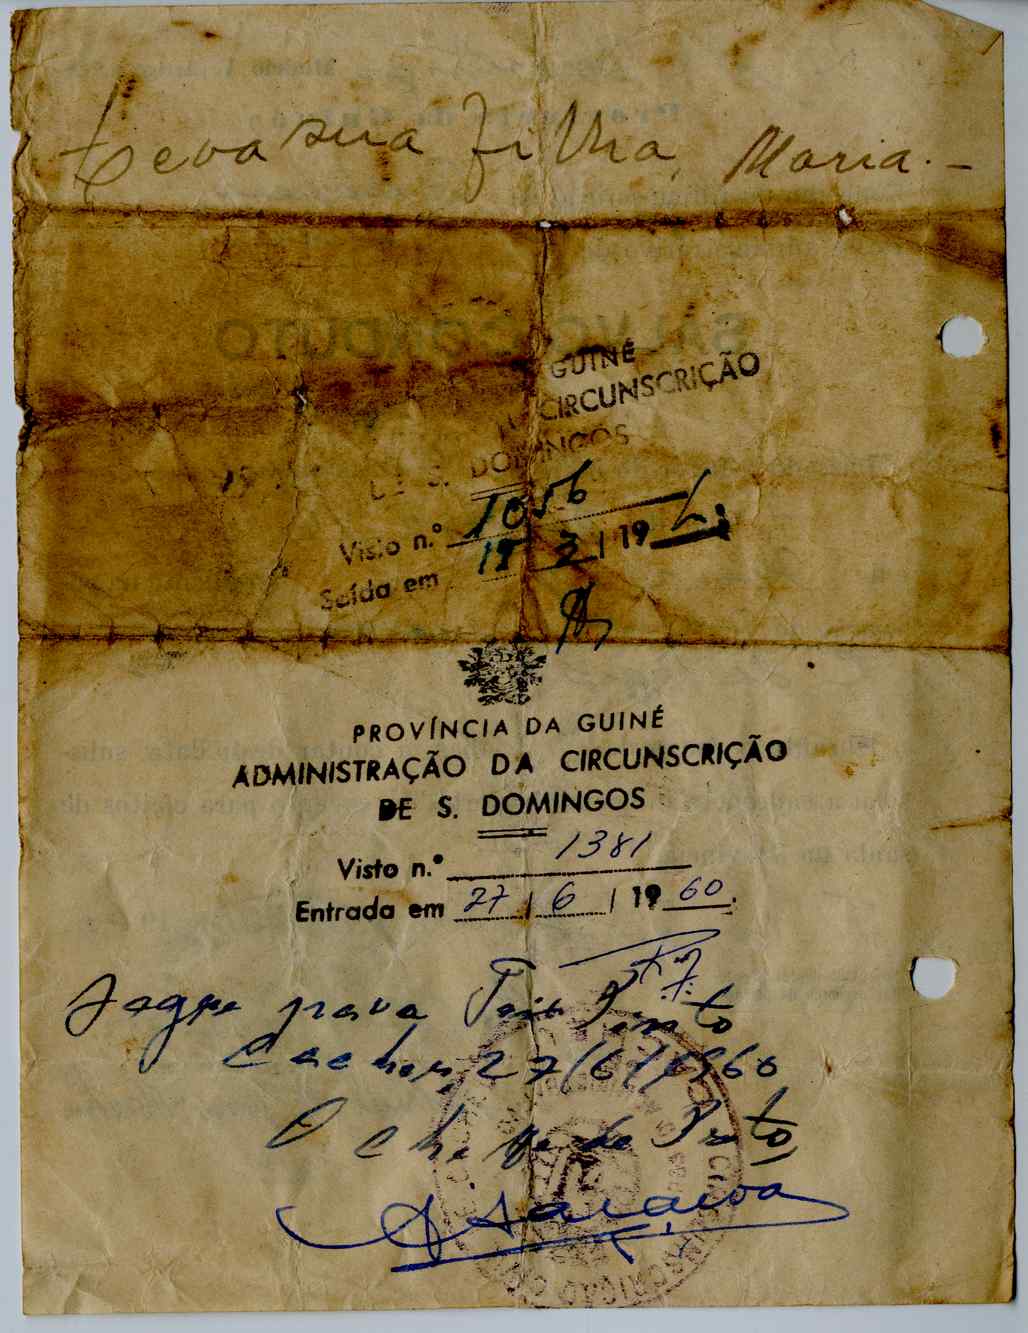 Leva sua filha, Maria. -
GUINÉ
CIRCUNSCRIÇÃO
DE S. DOMINGOS
Visto n.º 1056
Saída em 18 | 3 | 19
PROVÍNCIA DA GUINÉ
ADMINISTRAÇÃO DA CIRCUNSCRIÇÃO
DE S. DOMINGOS
Visto n.º 1381
Entrada em 27 | 6 | 19 60.
Segue para Teix. Pinto
Cacheu, 27/6/1960
O Chefe de Posto,
Saraiva